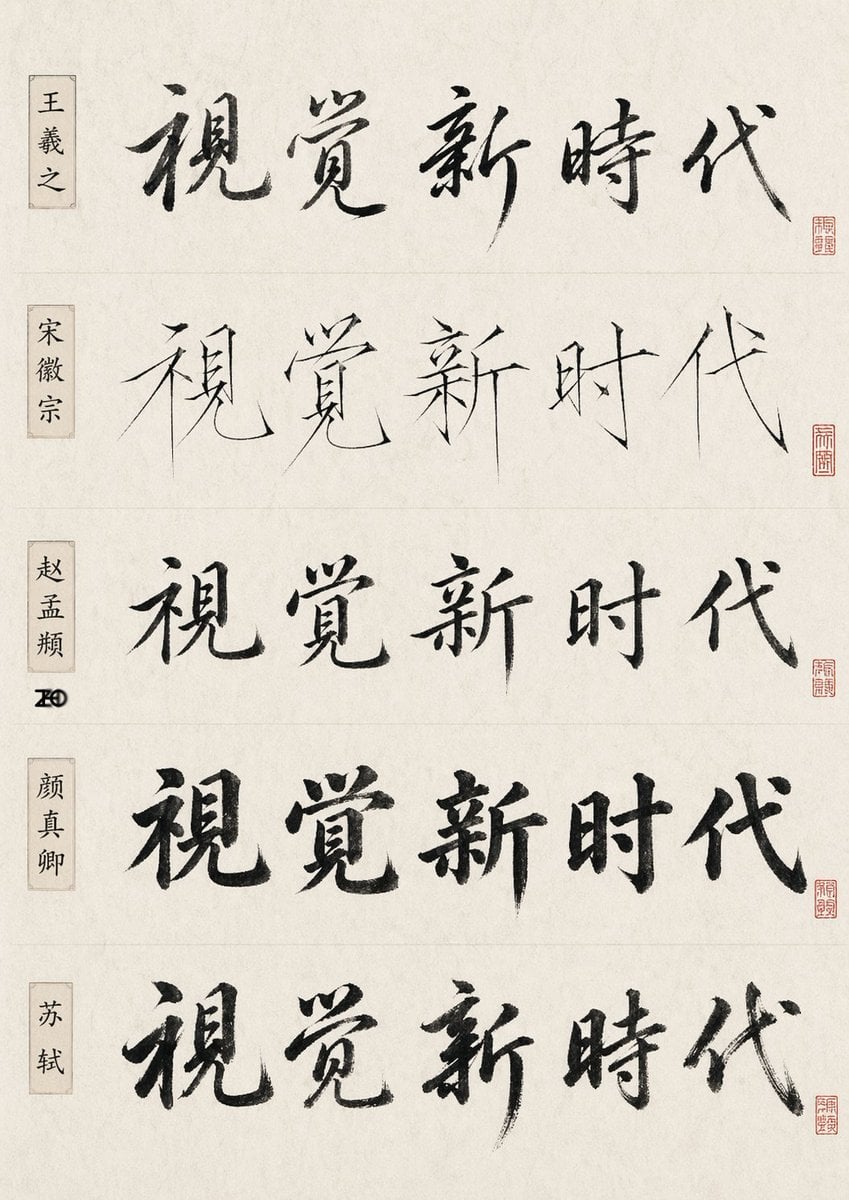 王羲之
視觉新時代
宋徽宗
視覚新时代
赵孟頫
視覚新时代
颜真卿
視覚新时代
苏轼
視觉新時代